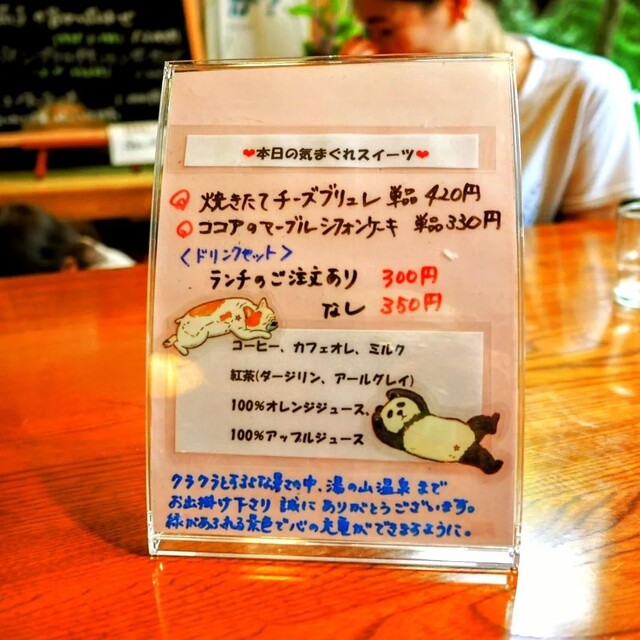 ❤本日の気まぐれスイーツ❤
焼きたてチーズブリュレ 単品 420円
ココアのマーブルシフォンケーキ 単品 330円
<ドリンクセット>
ランチのご注文あり 300円
なし 350円
コーヒー、カフェオレ、ミルク
紅茶(ダージリン、アールグレイ)
100%オレンジジュース、
100%アップルジュース
クラクラとするような暑さの中、湯の山温泉まで
お出掛け下さり 誠に ありがとうございます。
緑があふれる景色で心の充電ができますように。